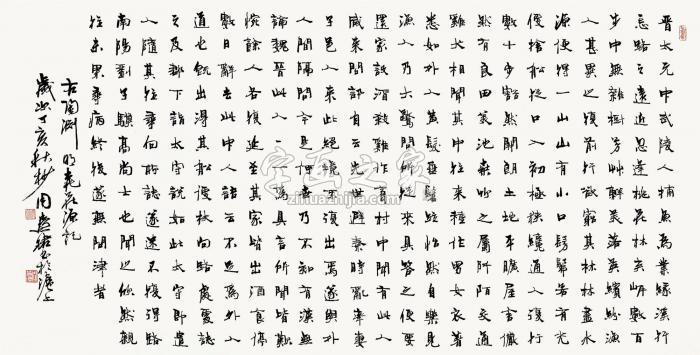 晋太元中武陵人捕魚為業緣溪行
忘路之遠近忽逢桃花林夾岸數百
步中無雜樹芳草鮮美落英繽紛漁
人甚異之復前行欲窮其林林盡水
源便得一山山有小口髣髴若有光
便捨船從口入初極狹纔通人復行
數十步豁然開朗土地平曠屋舍儼
然有良田美池桑竹之屬阡陌交通
雞犬相聞其中往來種作男女衣著
悉如外人黃髮垂髫並怡然自樂見
漁人乃大驚問所從來具答之便要
還家設酒殺雞作食村中聞有此人
咸來問訊自云先世避秦時亂率妻
子邑人來此絕境不復出焉遂與外
人間隔問今是何世乃不知有漢無
論魏晉此人一一為具言所聞皆歎
惋餘人各復延至其家皆出酒食停
數日辭去此中人語云不足為外人
道也既出得其船便扶向路處處誌
之及郡下詣太守說如此太守即遣
人隨其往尋向所誌遂迷不復得路
南陽劉子驥高尚士也聞之欣然親
往未果尋病終後遂無問津者
右陶淵明桃花源記
歲次丁亥秋杪周慧珺書於滬上
字画之家